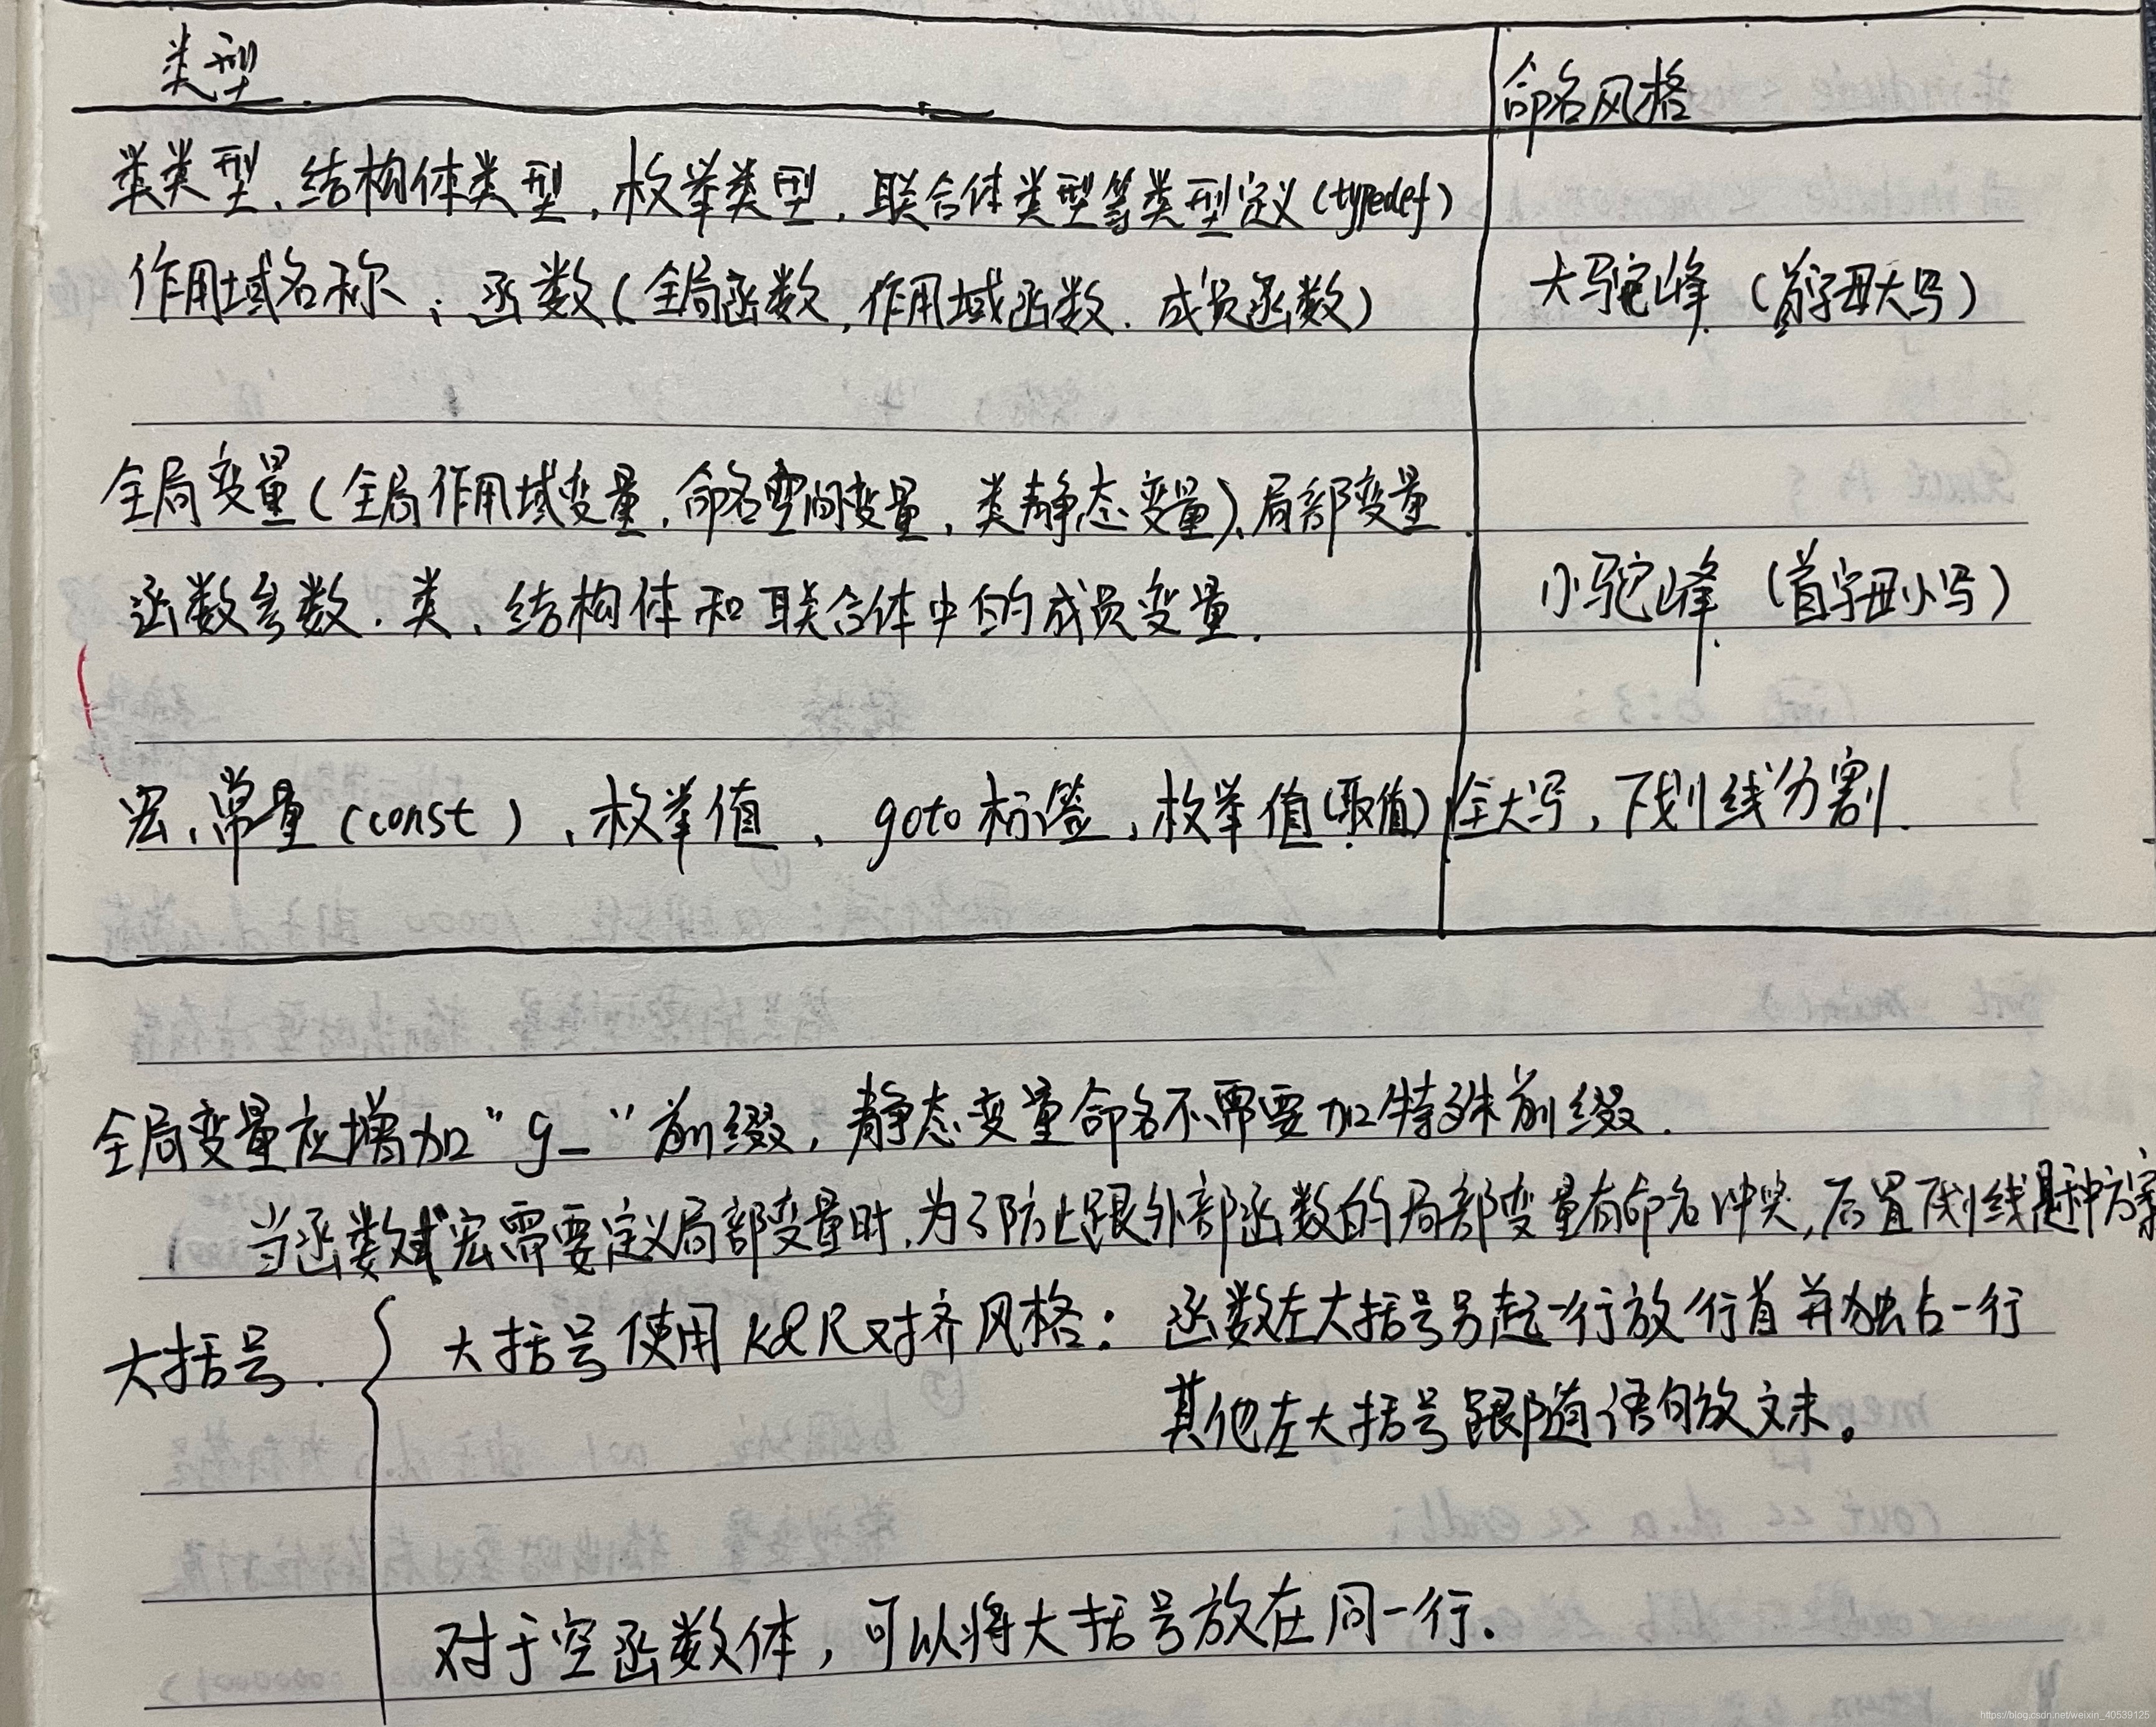 类型 命名风格
类类型、结构体类型,枚举类型,联合体类型等类型定义(typedef)
作用域名称;函数(全局函数,作用域函数.成员函数) 大驼峰(首字母大写)
全局变量(全局作用域变量,命名空间变量,类静态变量)、局部变量
函数参数.类、结构体和联合体中的成员变量. 小驼峰(首字母小写)
宏、常量(const)、枚举值、goto标签,枚举值(取值) 全大写,下划线分割.
全局变量应增加"g_"前缀,静态变量命名不需要加特殊前缀.
当函数式宏需要定义局部变量时,为了防止跟外部函数的局部变量有命名冲突,后置下划线是种方案
大括号. 大括号使用K&R对齐风格:函数左大括号另起一行放行首并独占一行
其他左大括号跟随语句放文末。
对于空函数体,可以将大括号放在同一行.
https://blog.csdn.net/weixin_40539125